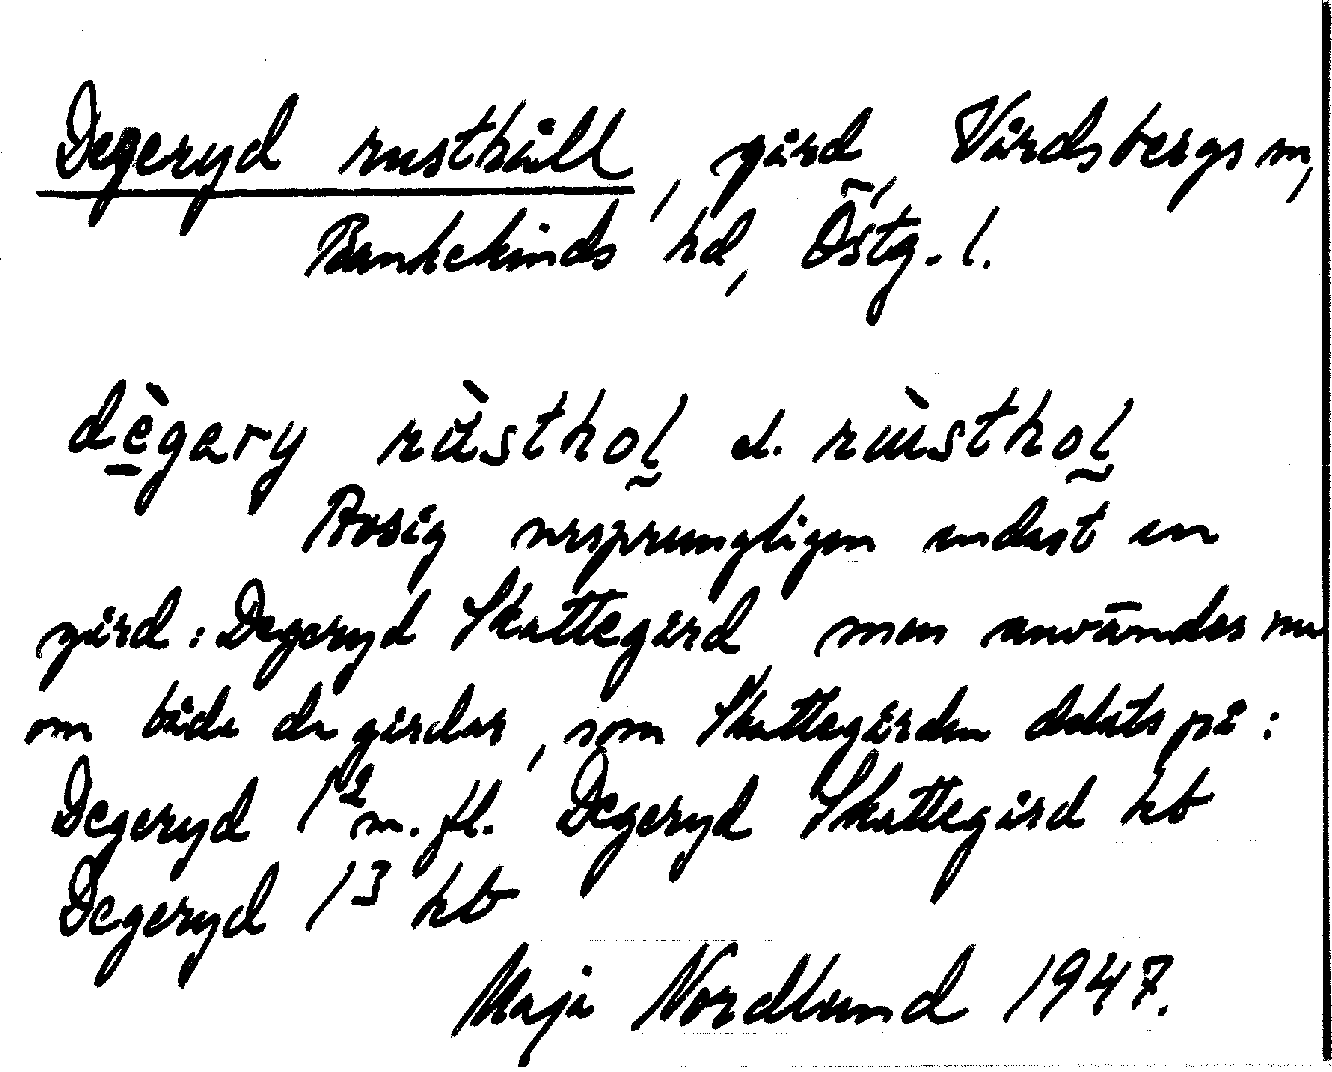 Degeryd rusthåll, gård, Vårdsbergs sn,
Bankekinds hd, Östg. l.
dègary rùsthoḷ el. rùusthoḷ
Avsåg ursprungligen endast en
gård: Degeryd Skattegård men användes nu
om båda de gårdar, som Skattegården delats på:
Degeryd 1² m. fl. Degeryd Skattegård kb
Degeryd 1³ kb
Maja Nordlund 1947.